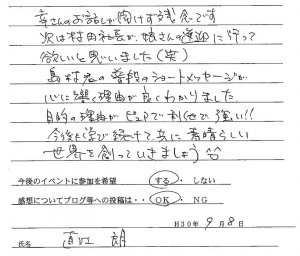 幸さんのお話しが聞けず残念です
次は村田社長が、娘さんの送迎に行って
欲しいと思いました（笑）
島村君の普段のショートメッセージが
心に響く理由が良くわかりました
目的の理由がピュアで利他で強い!!
今後も学び続けて共に素晴らしい
世界を創っていきましょう ^^
今後のイベントに参加を希望 する ・ しない
感想についてブログ等への投稿は・・ OK ・ NG
H30年 9月 8日
氏名 直江 朗